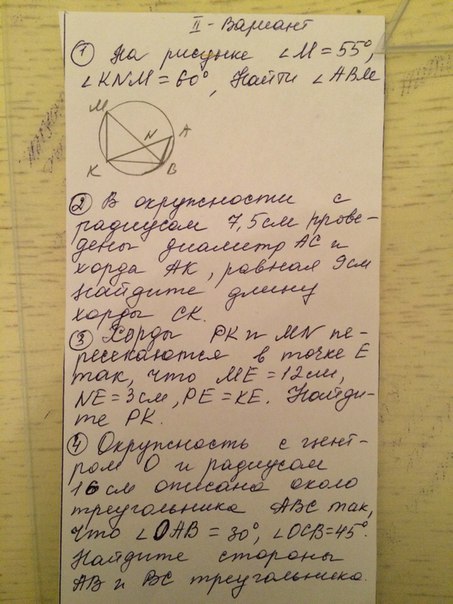 II - Вариант
① На рисунке ∠M = 55°,
∠KNM = 60°, Найти ∠ABM
M
N
A
K
B
② В окружности с
радиусом 7,5см прове-
дены диаметр AC и
хорда AK, равная 9см
Найдите длину
хорды CK.
③ Хорды PK и MN пе-
ресекаются в точке E
так, что ME = 12см,
NE = 3см, PE = KE. Найди-
те PK.
④ Окружность с цент-
ром O и радиусом
16 см описана около
треугольника ABC так,
что ∠OAB = 30°, ∠OCB=45°.
Найдите стороны
AB и BC треугольника.